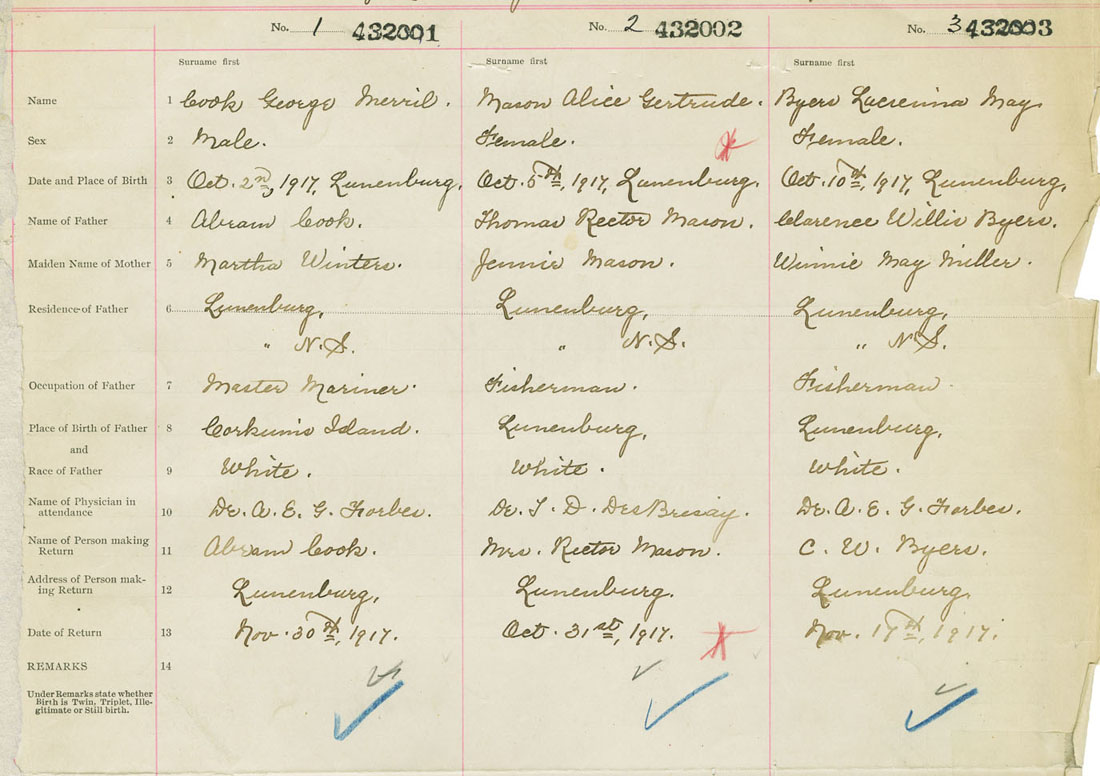 No. 1 432001 No. 2 432002 No. 3 432003
Surname first Surname first Surname first
Name 1 Cook George Merril. Mason Alice Gertrude. Byers May
Sex 2 Male. Female. Female.
Date and Place of Birth 3 Oct. 2nd, 1917, Lunenburg. Oct. 5th, 1917, Lunenburg. Oct. 10th, 1917, Lunenburg,
Name of Father 4 Abram Cook. Thomas Rector Mason. Clarence Willis Byers.
Maiden Name of Mother 5 Martha Winters. Jennie Mason. Winnie May Miller.
Residence of Father 6 Lunenburg, Lunenburg, Lunenburg,
" N.S. " N.S. " N.S.
Occupation of Father 7 Master Mariner. Fisherman. Fisherman.
Place of Birth of Father 8 Corkum's Island. Lunenburg, Lunenburg,
and
Race of Father 9 White. White. White.
Name of Physician in
attendance 10 Dr. A. E. G. Forbes. Dr. T. D. DesBrisay. Dr. A. E. G. Forbes.
Name of Person making
Return 11 Abram Cook. Mrs. Rector Mason. C. W. Byers.
Address of Person mak-
ing Return 12 Lunenburg, Lunenburg. Lunenburg,
Date of Return 13 Nov. 30th, 1917. Oct. 31st, 1917. Nov. 17th, 1917.
REMARKS 14
Under Remarks state whether
Birth is Twin, Triplet, Ille-
gitimate or Still birth.